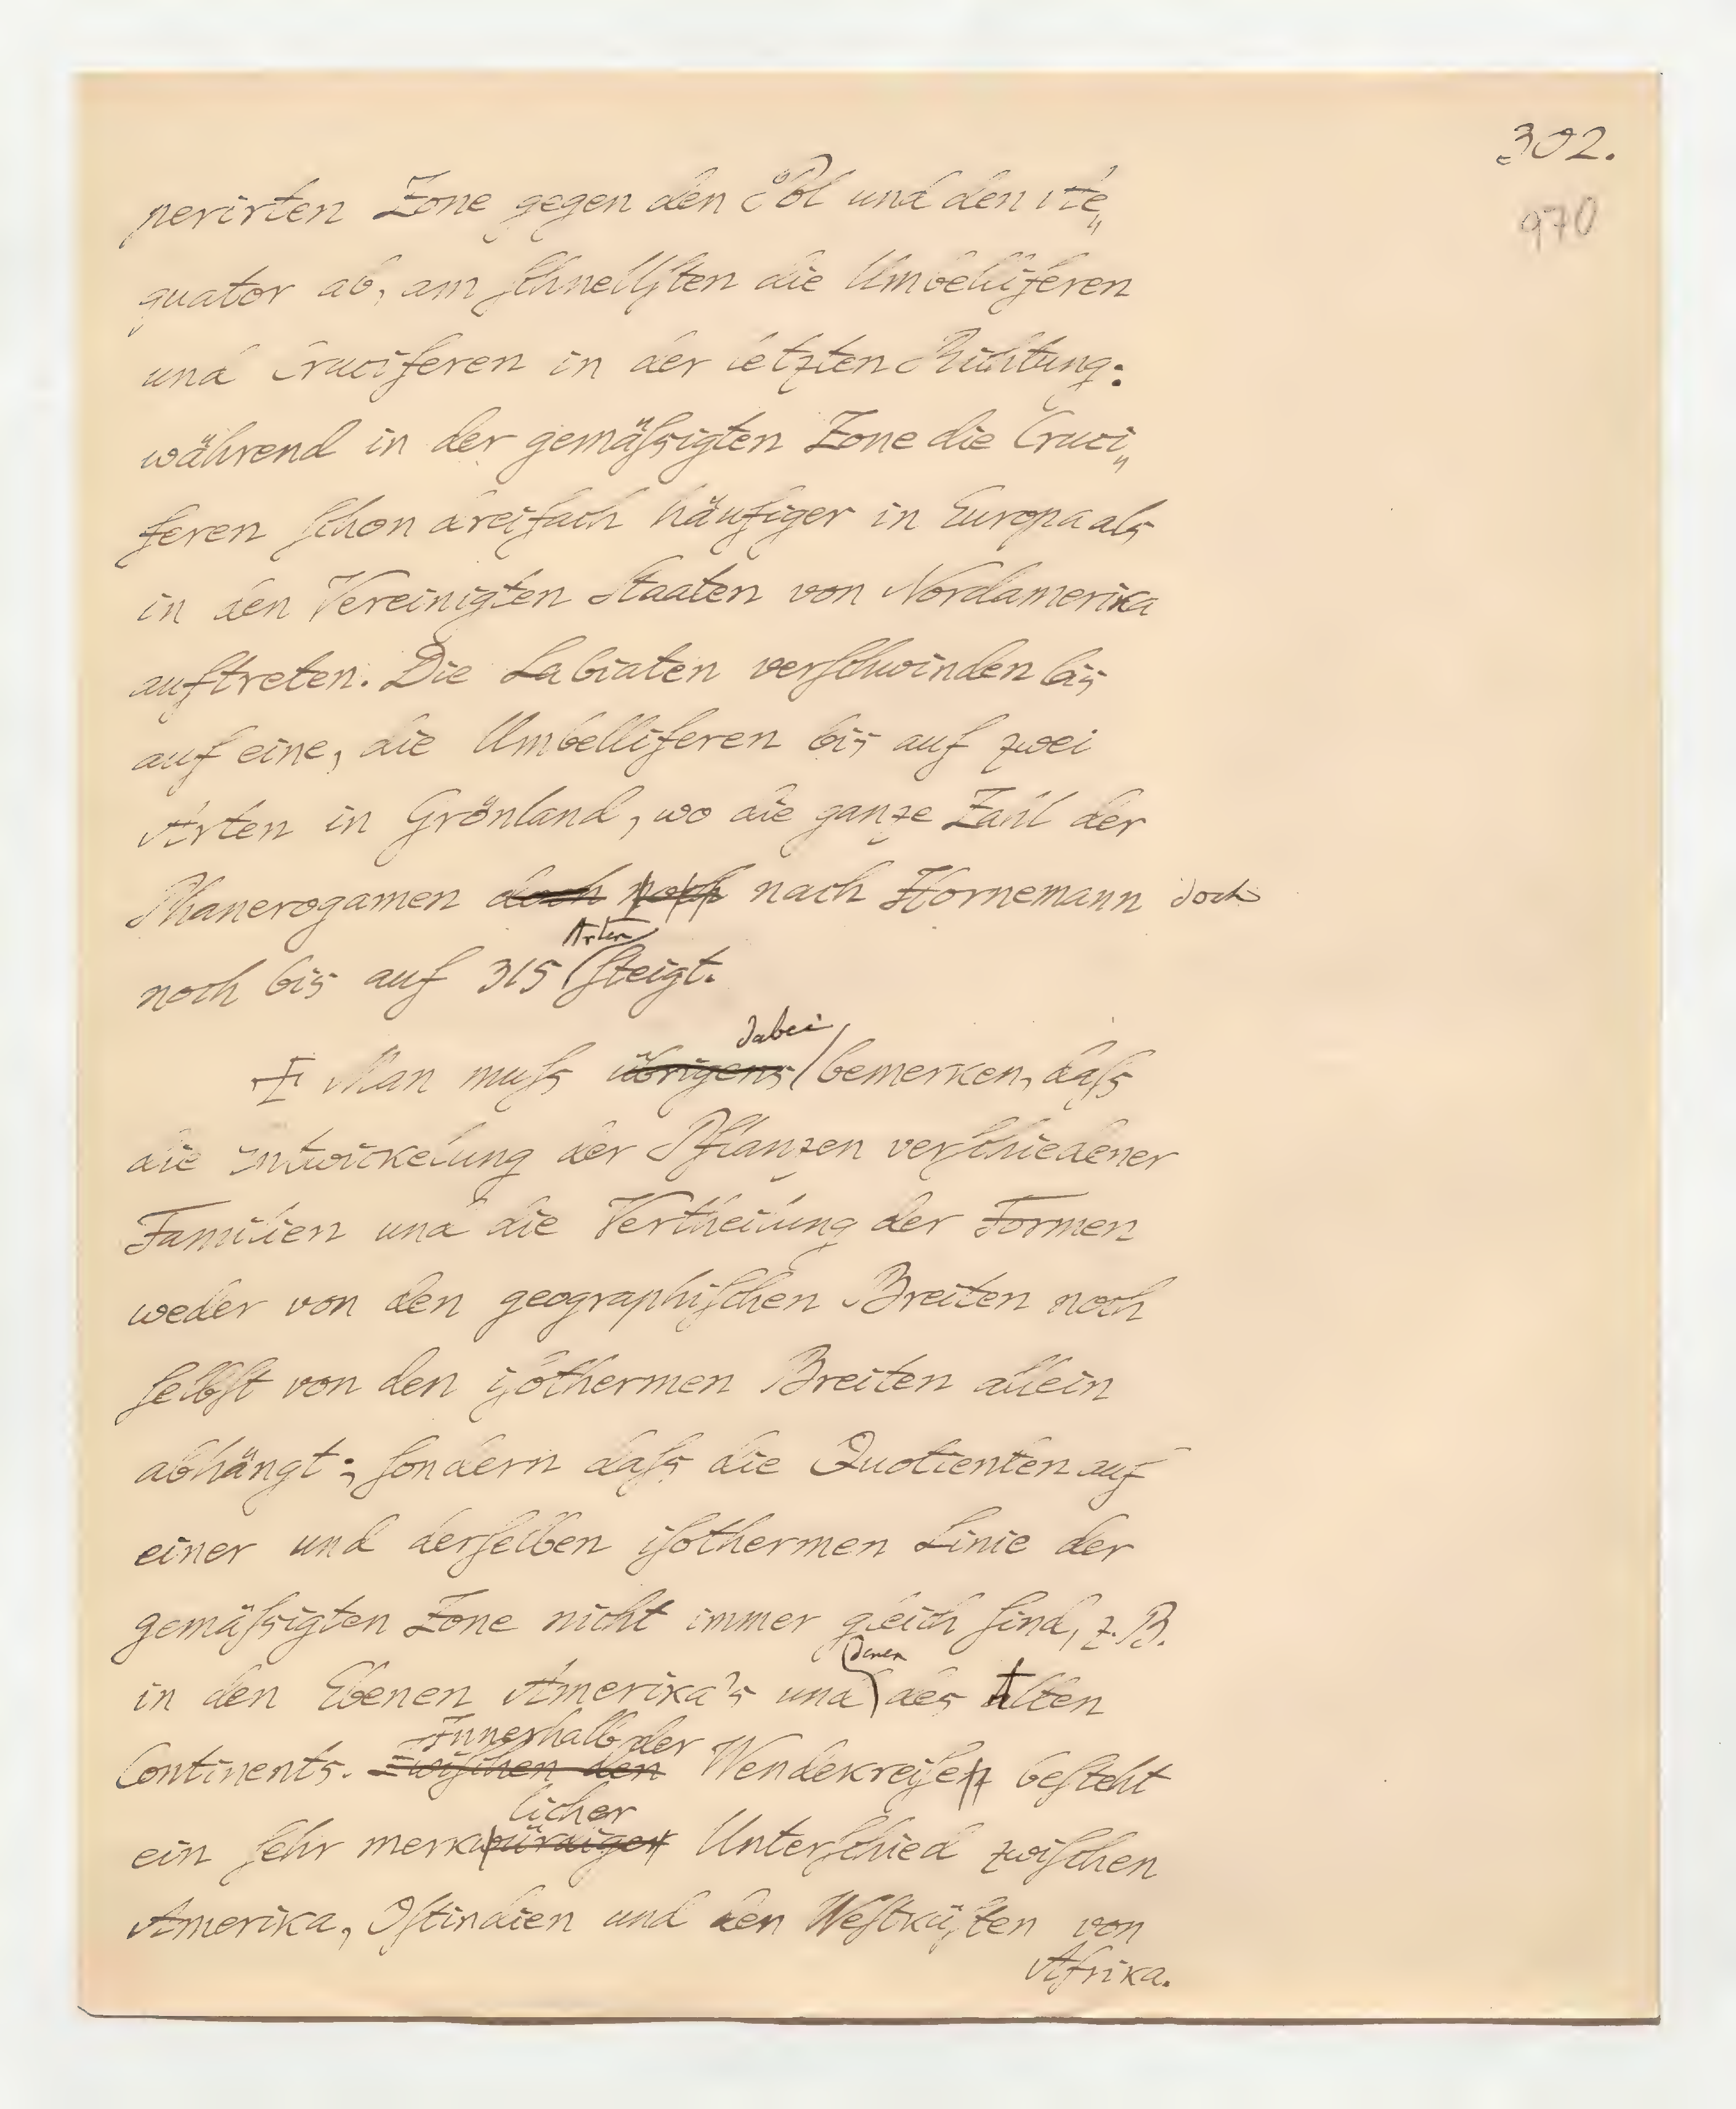 302.
970
perirten Zone gegen den Pol und den Ae„
quator ab, am schnellsten die Umbelliferen
und Cruciferen in der letzten Richtung:
während in der gemäßigten Zone die Cruci„
feren schon dreifach häufiger in Europa als
in den Vereinigten Staaten von Nordamerika
auftreten. Die Labiaten verschwinden bis
auf eine, die Umbelliferen bis auf zwei
Arten in Grönland, wo die ganze Zahl der
Phanerogamen doch noch nach Hornemann doch
Arten
noch bis auf 315 steigt.
dabei
Man muß übrigens bemerken, daß
die Entwickelung der Pflanzen verschiedener
Familien und die Vertheilung der Formen
weder von den geographischen Breiten noch
selbst von den isothermen Breiten allein
abhängt; sondern daß die Quotienten auf
einer und derselben isothermen Linie der
gemäßigten Zone nicht immer gleich sind, z. B.
denen
in den Ebenen Amerika's und des alten
Innerhalb der
Continents. Zwischen den Wendekreisen besteht
licher
ein sehr merkwürdiger Unterschied zwischen
Amerika, Ostindien und den Westküsten von
Afrika.